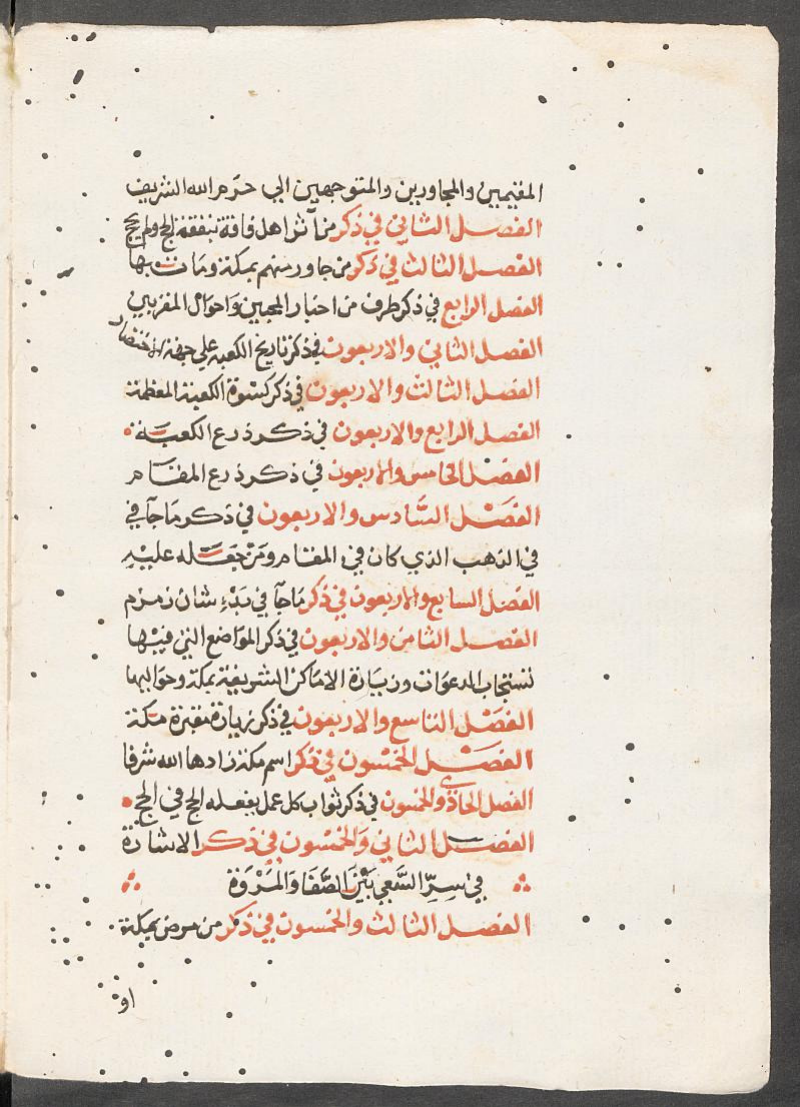 المقيمين والمجاورين والمتوجهين الي حرم الله الشريف
الفصل الثاني في ذكر من آثر اهل فاقة بنفقة الحج ولم يحج
الفصل الثالث في ذكر من جاور منهم بمكة ومات بها
الفصل الرابع في ذكر طرف من اخبار المحبين واحوال المقربين
الفصل الثاني والاربعون في ذكر تاريخ الكعبه علي جهة الاختصار
الفصل الثالث والاربعون في ذكر كسوة الكعبة المعظمة
الفصل الرابع والاربعون في ذكر ذرع الكعبة
الفصل الخامس والاربعون في ذكر ذرع المقام
الفصل السادس والاربعون في ذكر ما جآ في
في الذهب الذي كان في المقام ومن جعله عليه
الفصل السابع والاربعون في ذكر ما جآ في بدء شان زمزم
الفصل الثامن والاربعون في ذكر المواضع التي فيها
تستجاب الدعوات وزيارة الاماكن الشريفة بمكة وحواليها
الفصل التاسع والاربعون في ذكر زيارة مقبرة مكة
الفصل الخمسون في ذكر اسم مكة زادها الله شرفا
الفصل الحادي والخمسون في ذكر ثواب كل عمل يفعله الحج في الحج
الفصل الثاني والخمسون في ذكر الاشارة
في سر السعي بين الصفا والمروة
الفصل الثالث والخمسون في ذكر من مرض بمكة
او